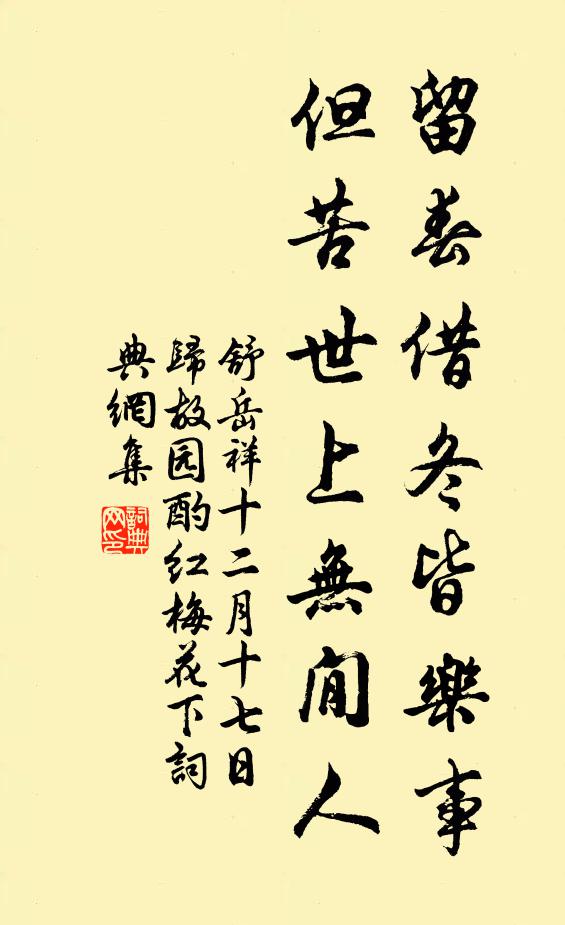 留春借冬皆樂事
但苦世上無閒人
舒岳祥十二月十七日
歸故园酌红梅花下詞
典網集
詞典
网印